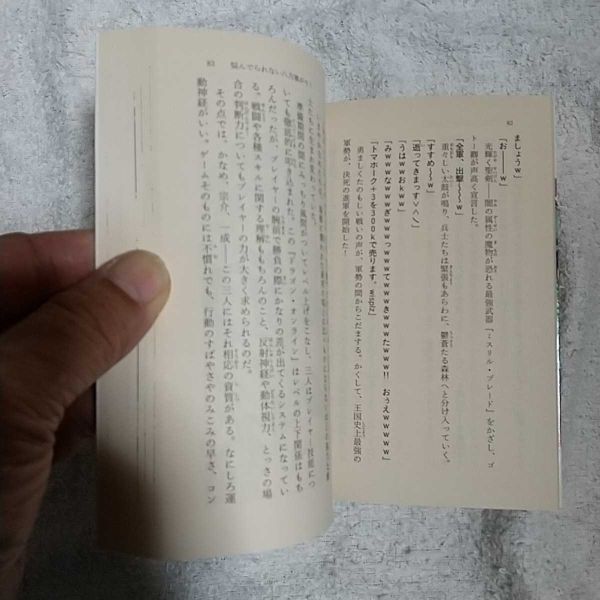 82
ましょうw
「お――w」
光輝く聖剣――闇の属性の魔物が恐れる最強武器『ミスリル・ブレード』をかざし、ゴ
トー卿が声高く宣言した。
「全軍、出撃~~~w」
重々しい太鼓が鳴り、兵士たちは緊張もあらわに、鬱蒼たる森林へと分け入っていく。
「すすめ~~w」
「逝ってきまっすv∧」
「うはwwおkww」
「みwwwなwwwぎwwwっwwwてwwwきwwwたwww!! おぅえwwwww」
「トマホーク+3を300kで売ります。wisplz」
勇ましくたのもしい戦いの声が、軍勢の間からこだまする。かくして、王国史上最強の
軍勢が、決死の進軍を開始した!
83 悩んでられない八方塞がり?
準備期間の間にみっちり風間がついてレベル上げをこなし、三人はプレイヤー技能につ
いても徹底的に叩き込まれた。この『ドラゴン・オンライン』はレベルの上下関係はもち
ろんだったが、プレイヤーの腕前で勝負の際にかなりの差が出てくるシステムになってい
る。戦闘や各種スキルに関する理解ももちろんのこと、反射神経や動体視力、とっさの場
合の判断力についてもプレイヤーの力が大きく求められるのだ。
その点では、かなめ、宗介、一成――この三人にはそれ相応の資質がある。なにしろ運
動神経がいい。ゲームそのものには不慣れでも、行動のすばやさやのみこみの早さ、コン